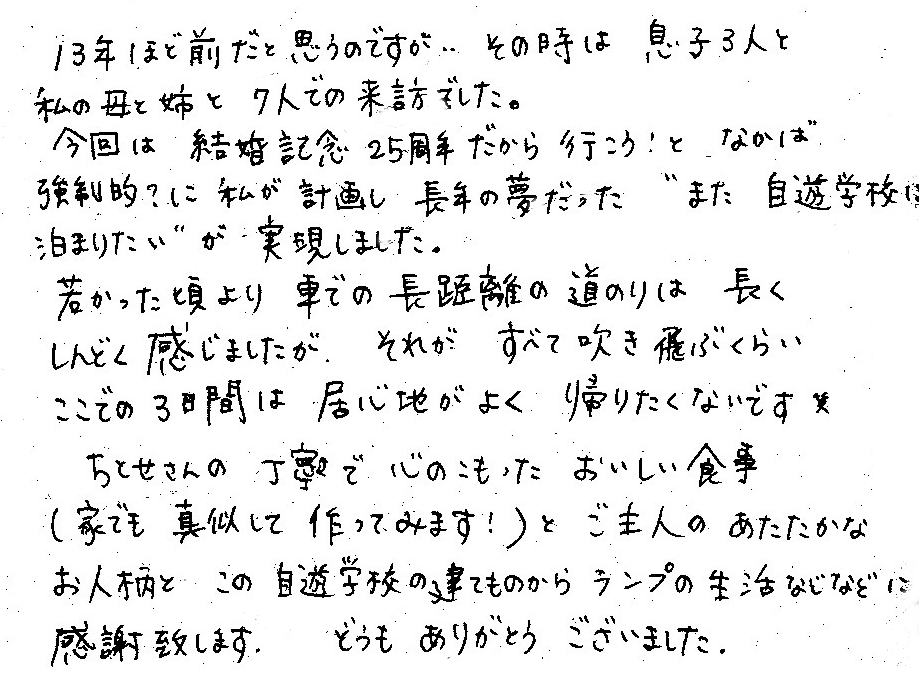 13年ほど前だと思うのですが‥ その時は 息子3人と
私の母と姉と 7人での来訪でした。
今回は 結婚記念25周年だから行こう!と なかば
強制的?に 私が計画し 長年の夢だった "また 自遊学校に
泊まりたい" が 実現しました。
若かった頃より 車での長距離の道のりは 長く
しんどく感じましたが. それが すべて吹き飛ぶくらい
ここでの3日間は 居心地がよく 帰りたくないです
ちとせさんの 丁寧で心のこもった おいしい食事
(家でも 真似して作ってみます!)と ご主人のあたたかな
お人柄と この自遊学校の建てものから ランプの生活などなどに
感謝致します. どうも ありがとう ございました.